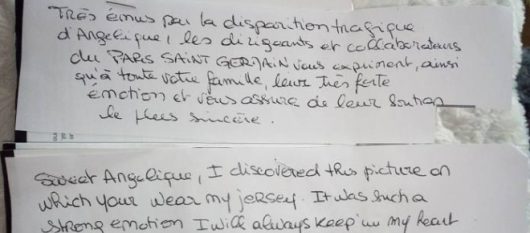 Très émus par la disparition tragique
d'Angelique, les dirigeants et collaborateurs
du PARIS SAINT GERMAIN vous expriment, ainsi
qu'à toute votre famille, leur très forte
émotion et vous assure de leur soutien
le plus sincère.
Sweet Angelique, I discovered this picture on
which your wear my jersey. It was such a
strong emotion I will always keep in my heart